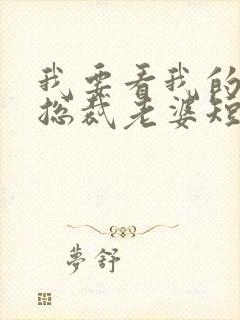 我要看我的
总裁老婆短
夢舒